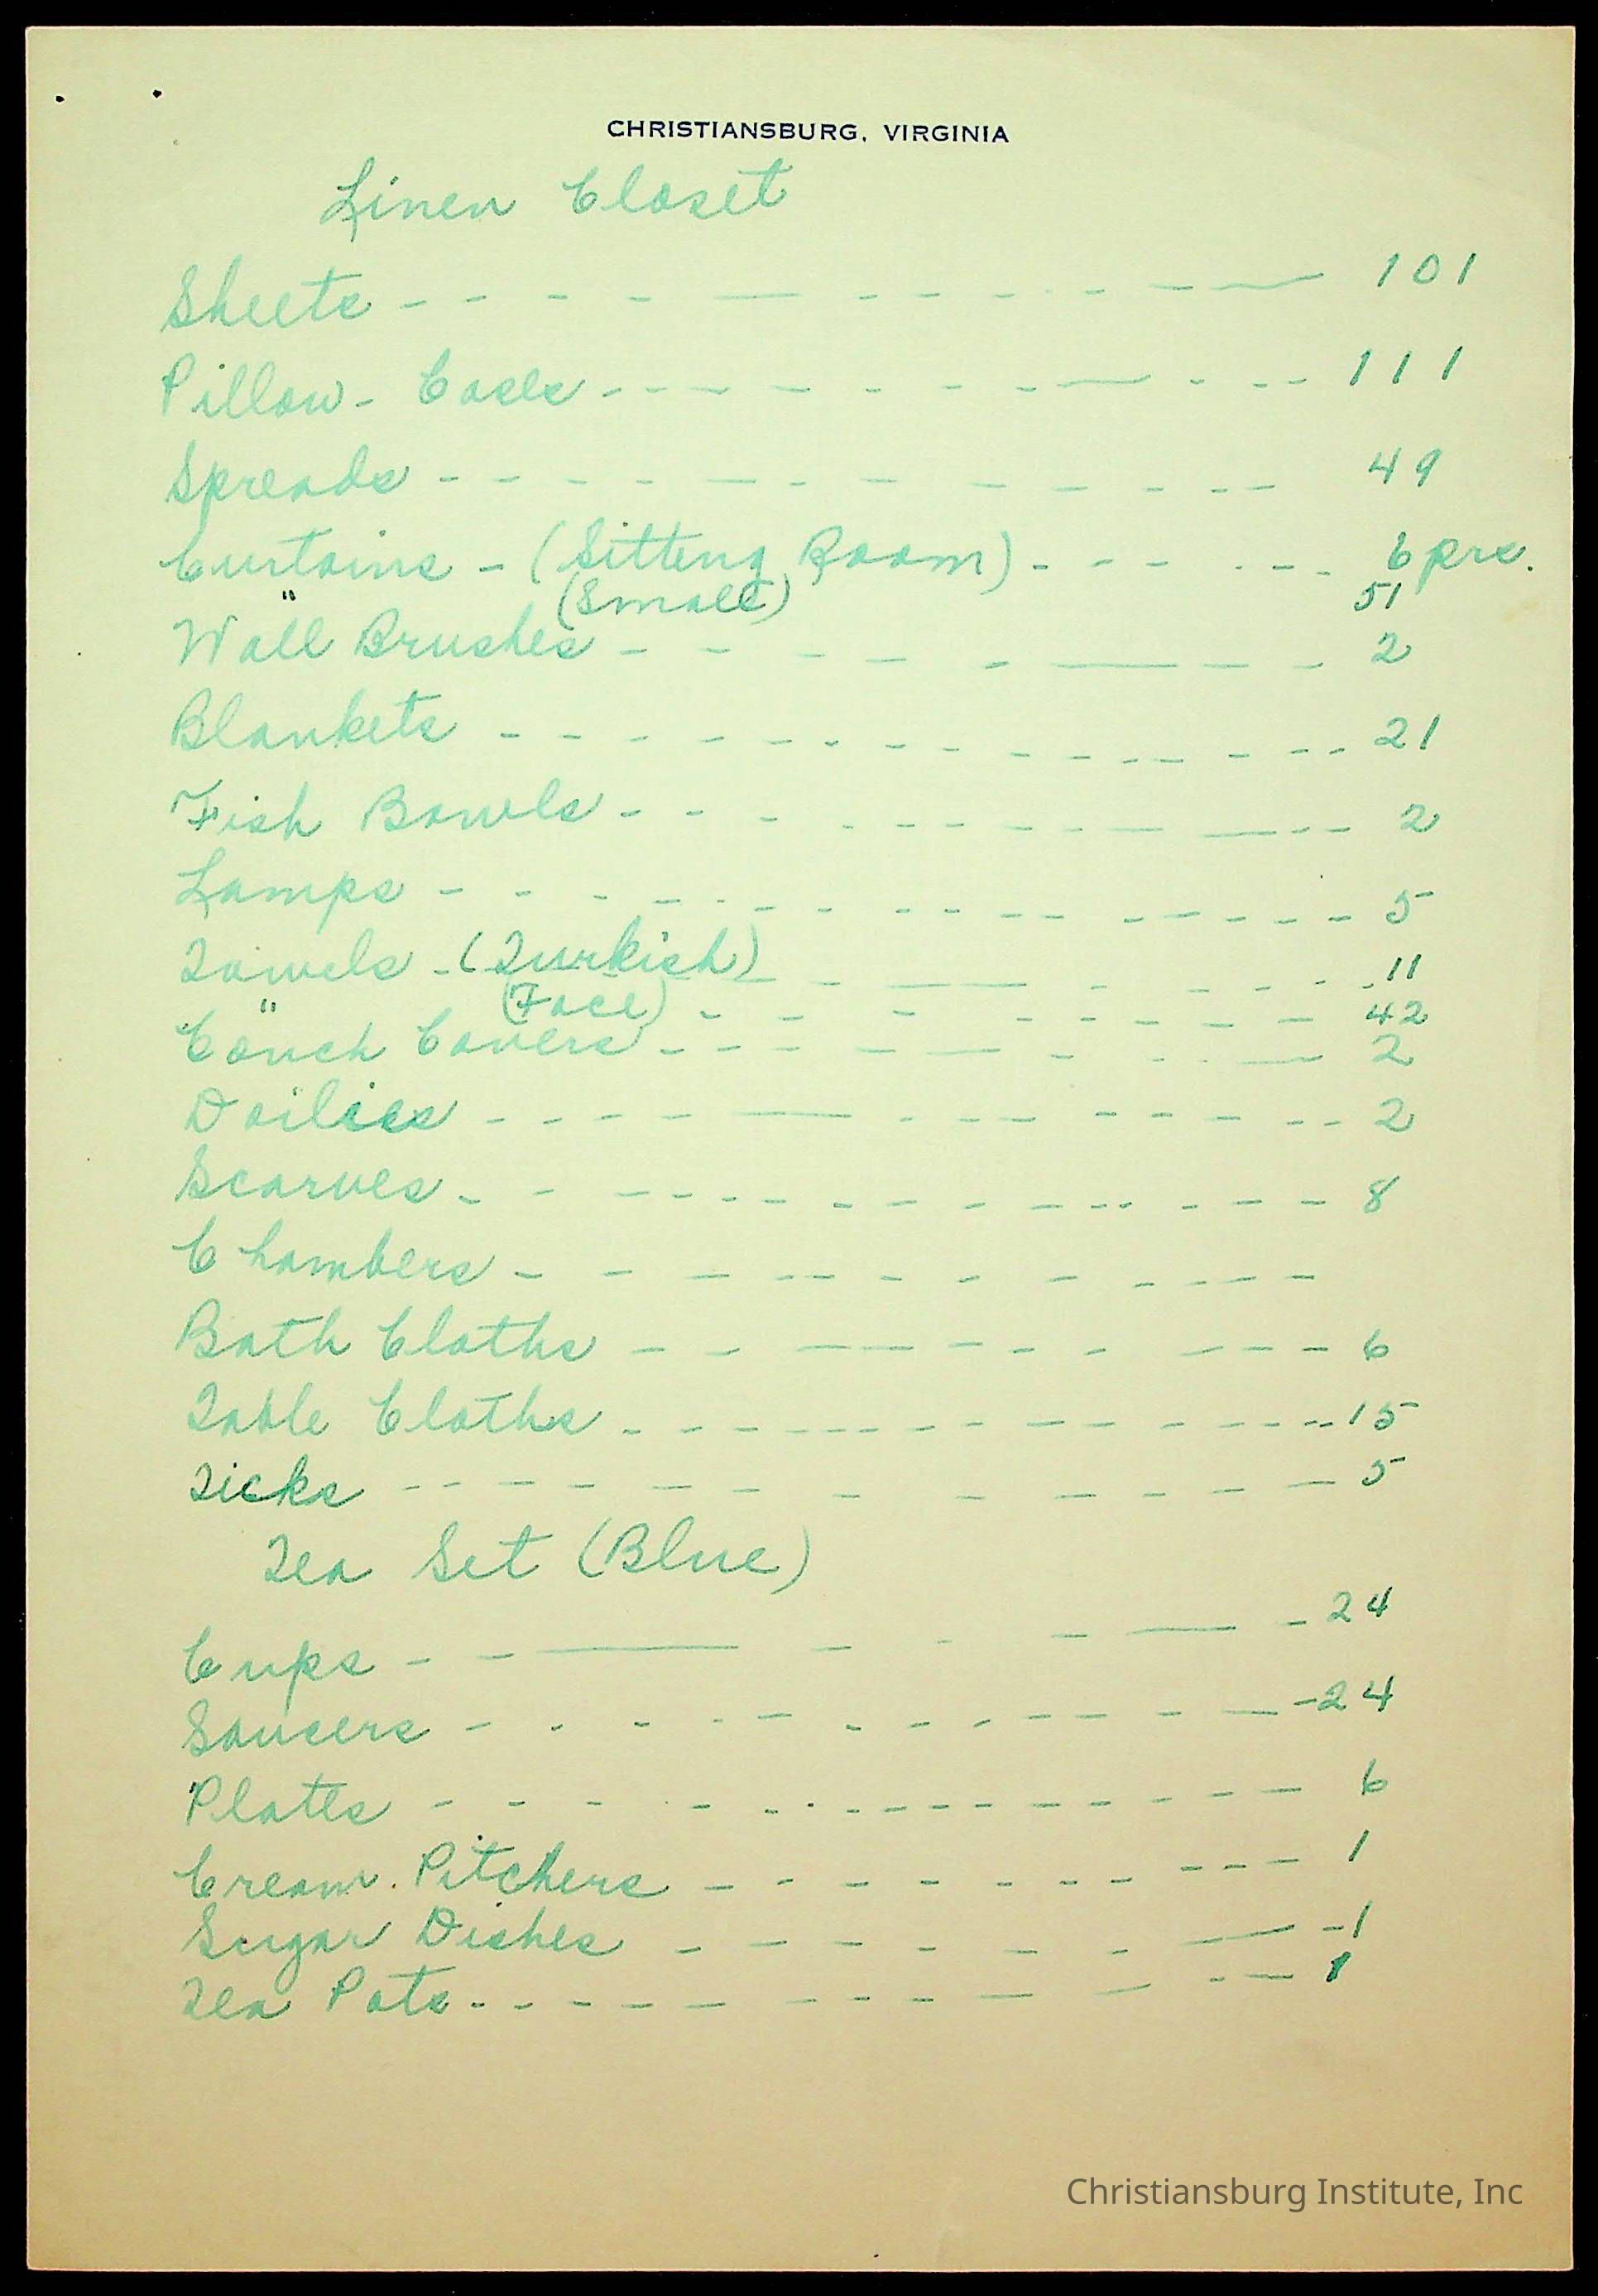 CHRISTIANSBURG, VIRGINIA
Linen Closet
Sheets - - - - - - - - - - - 101
Pillow-Cases - - - - - - - - - - - 111
Spreads - - - - - - - - - - - 49
Curtains - (Sitting Room) - - - - - - 6 prs.
" (Small) 51
Wall Brushes - - - - - - - - 2
Blankets - - - - - - - - - - - 21
Fish Bowls - - - - - - - - - - - 2
Lamps - - - - - - - - - - - 5
Towels - (Turkish) - - - - - - - 11
" (Face) - - - - - - - - 42
Couch Covers - - - - - - - - - 2
Doilies - - - - - - - - - - - 2
Scarves - - - - - - - - - - - 8
Chambers - - - - - - - - - - -
Bath Cloths - - - - - - - - - - 6
Table Cloths - - - - - - - - - - 15
Ticks - - - - - - - - - - - 5
Tea Set (Blue)
Cups - - - - - - - - 24
Saucers - - - - - - - - - - - 24
Plates - - - - - - - - - - - 6
Cream Pitchers - - - - - - - - - 1
Sugar Dishes - - - - - - - - 1
Tea Pots - - - - - - - - - - - 1
Christiansburg Institute, Inc